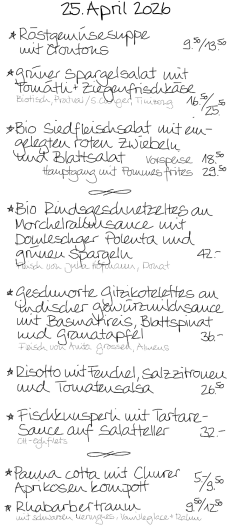 25. April 2026
* Röstgemüsesuppe
mit Croutons 9.50/13.50
* grüner Spargelsalat mit
Tomätli + Ziegenfrischkäse
16.50/25.50
* Bio Siedfleischsalat mit ein-
gelegten roten Zwiebeln
und Blattsalat Vorspeise 18.50
Hauptgang mit Pommes frites 29.50
* Bio Rindsgeschnetzeltes an
Morchelrahmsauce mit
Domleschger Polenta und
grünen Spargeln 42.-
Fleisch von
* Geschmorte Gitzikotelettes an
indischer Gewürzmilchsauce
mit Basmatireis, Blattspinat
und Granatapfel 36.-
Fleisch von Anita
* Risotto mit Fenchel, Salzzitronen
und Tomatensalsa 26.50
* Fischknusperli mit Tartare-
Sauce auf Salatteller 32.-
CH-
* Panna cotta mit Churer
Aprikosenkompott 5/9.50
* Rhabarbertraum 9.50/12.50
mit schwarzen Meringues, Vanilleglace + Rahm